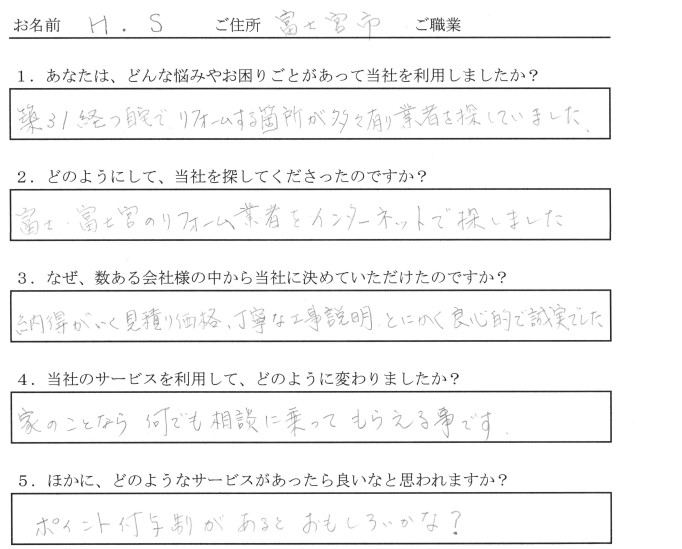 お名前 H.S ご住所 富士宮市 ご職業
1．あなたは、どんな悩みやお困りごとがあって当社を利用しましたか？
築31経つ自宅でリフォームする箇所が多々有り業者を探していました。
2．どのようにして、当社を探してくださったのですか？
富士・富士宮のリフォーム業者をインターネットで探しました
3．なぜ、数ある会社様の中から当社に決めていただけたのですか？
納得がいく見積り価格、丁寧な工事説明、とにかく良心的で誠実でした
4．当社のサービスを利用して、どのように変わりましたか？
家のことなら何でも相談に乗ってもらえる事です。
5．ほかに、どのようなサービスがあったら良いなと思われますか？
ポイント付与制があるとおもしろいかな？